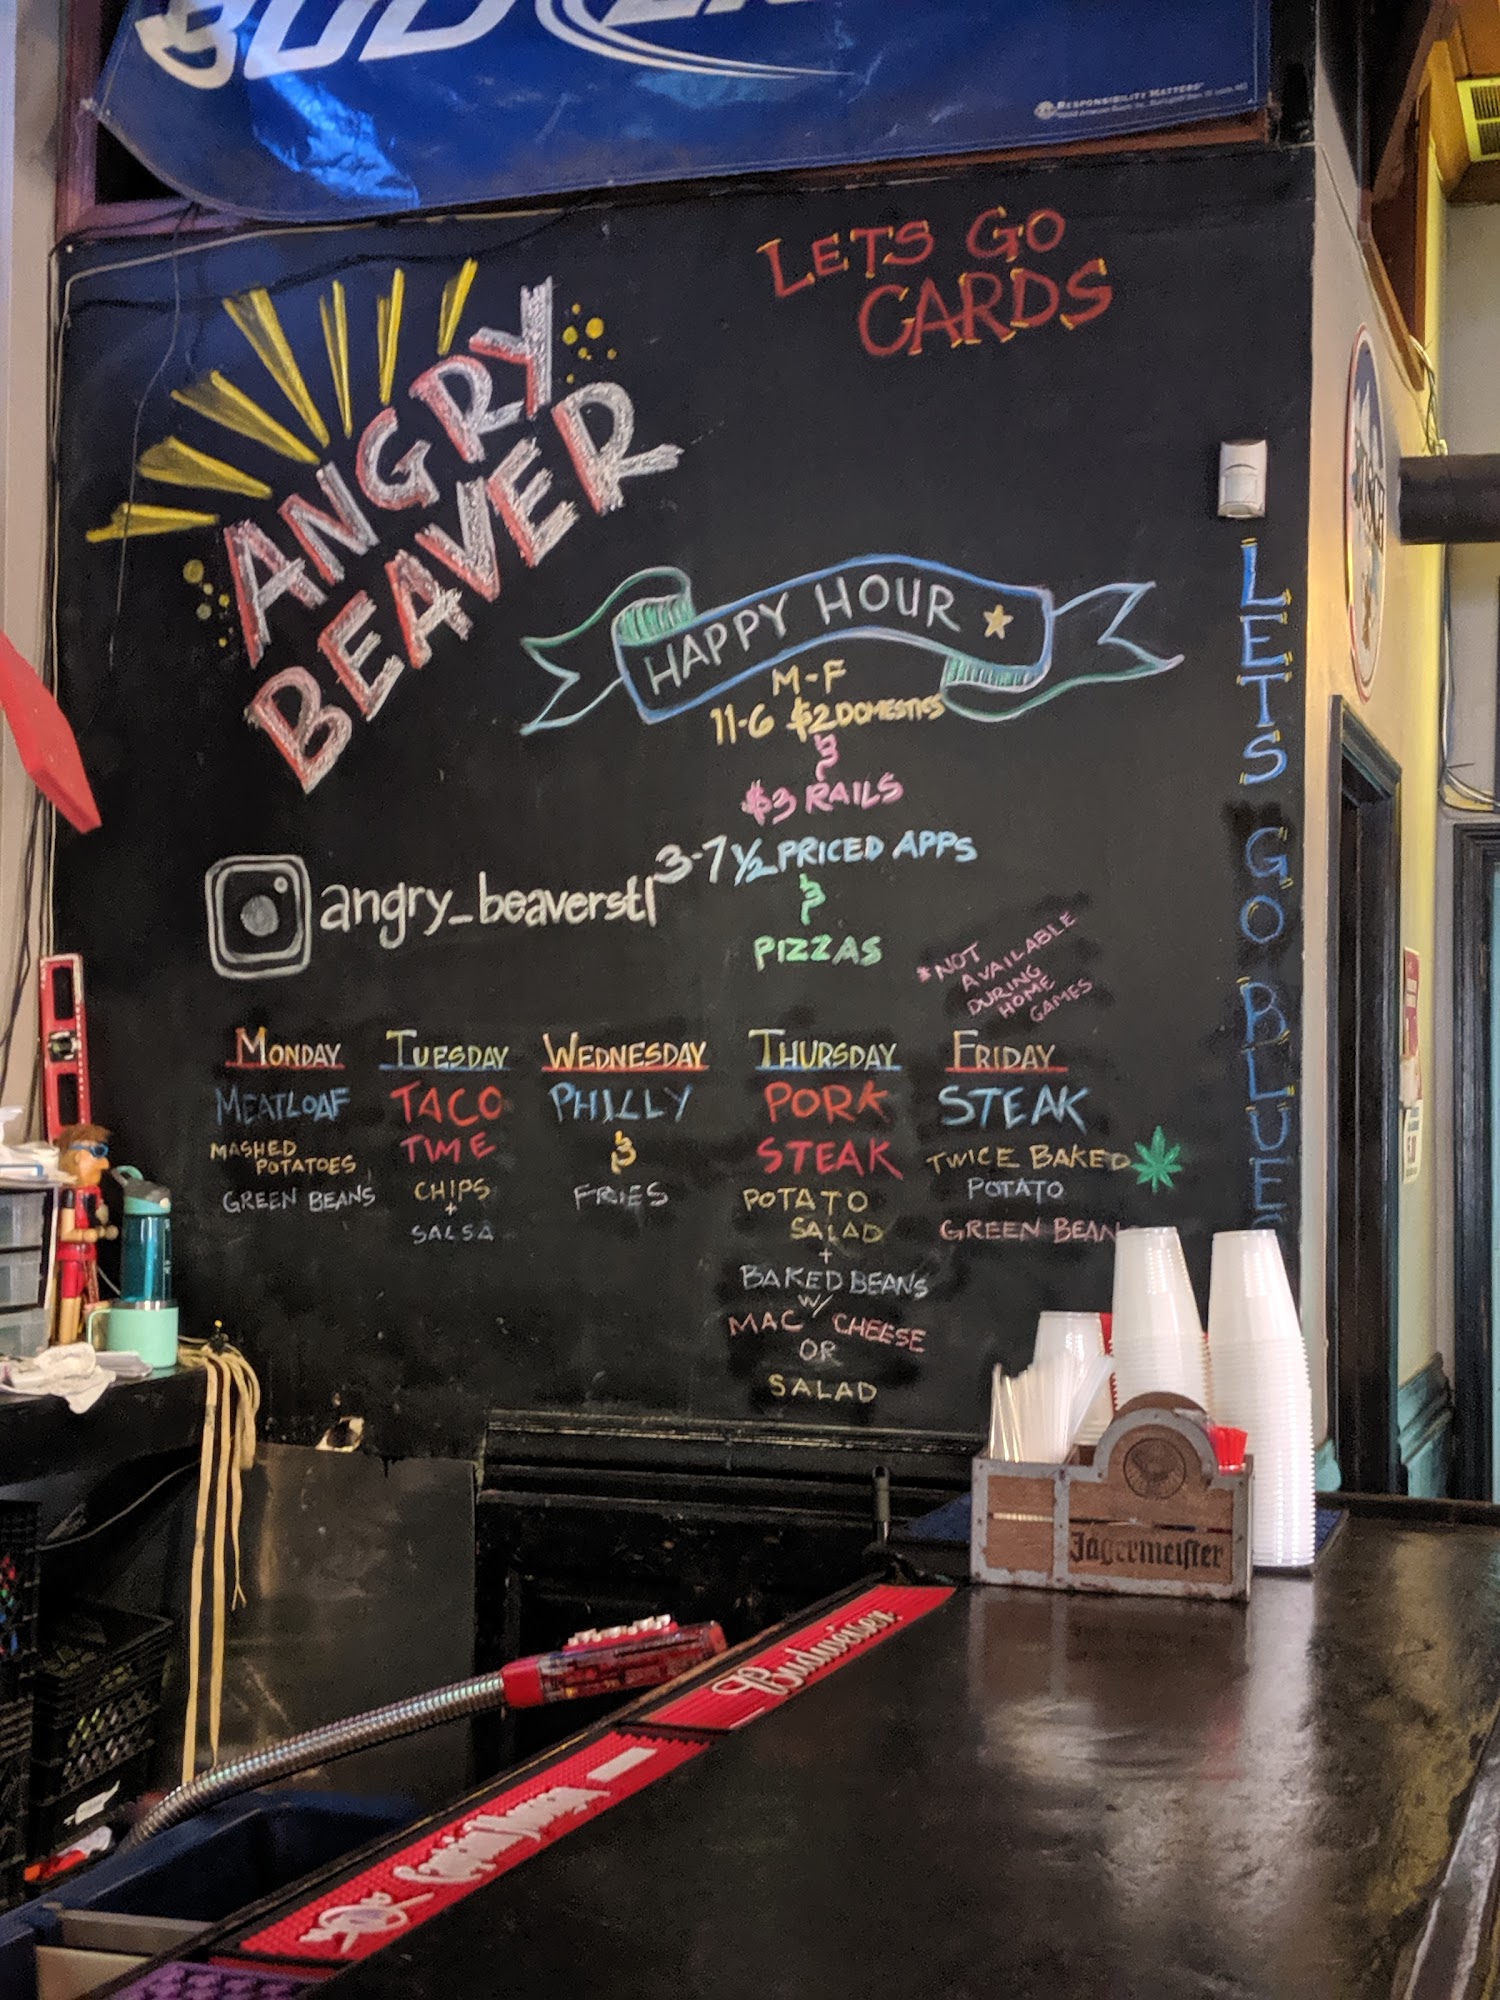 BUD LIGHT
RESPONSIBILITY MATTERS
LETS GO
CARDS
ANGRY
BEAVER
HAPPY HOUR
M-F
11-6 $2 DOMESTICS
&
$3 RAILS
3-7 ½ PRICED APPS
&
PIZZAS
angry_beaverstl
*NOT
AVAILABLE
DURING
HOME
GAMES
LETS GO BLUES
MONDAY
MEATLOAF
MASHED
POTATOES
GREEN BEANS
TUESDAY
TACO
TIME
CHIPS
+
SALSA
WEDNESDAY
PHILLY
&
FRIES
THURSDAY
PORK
STEAK
POTATO
SALAD
+
BAKED BEANS
W/
MAC CHEESE
OR
SALAD
FRIDAY
STEAK
TWICE BAKED
POTATO
GREEN BEAN
Jägermeister
Budweiser
Captain Morgan